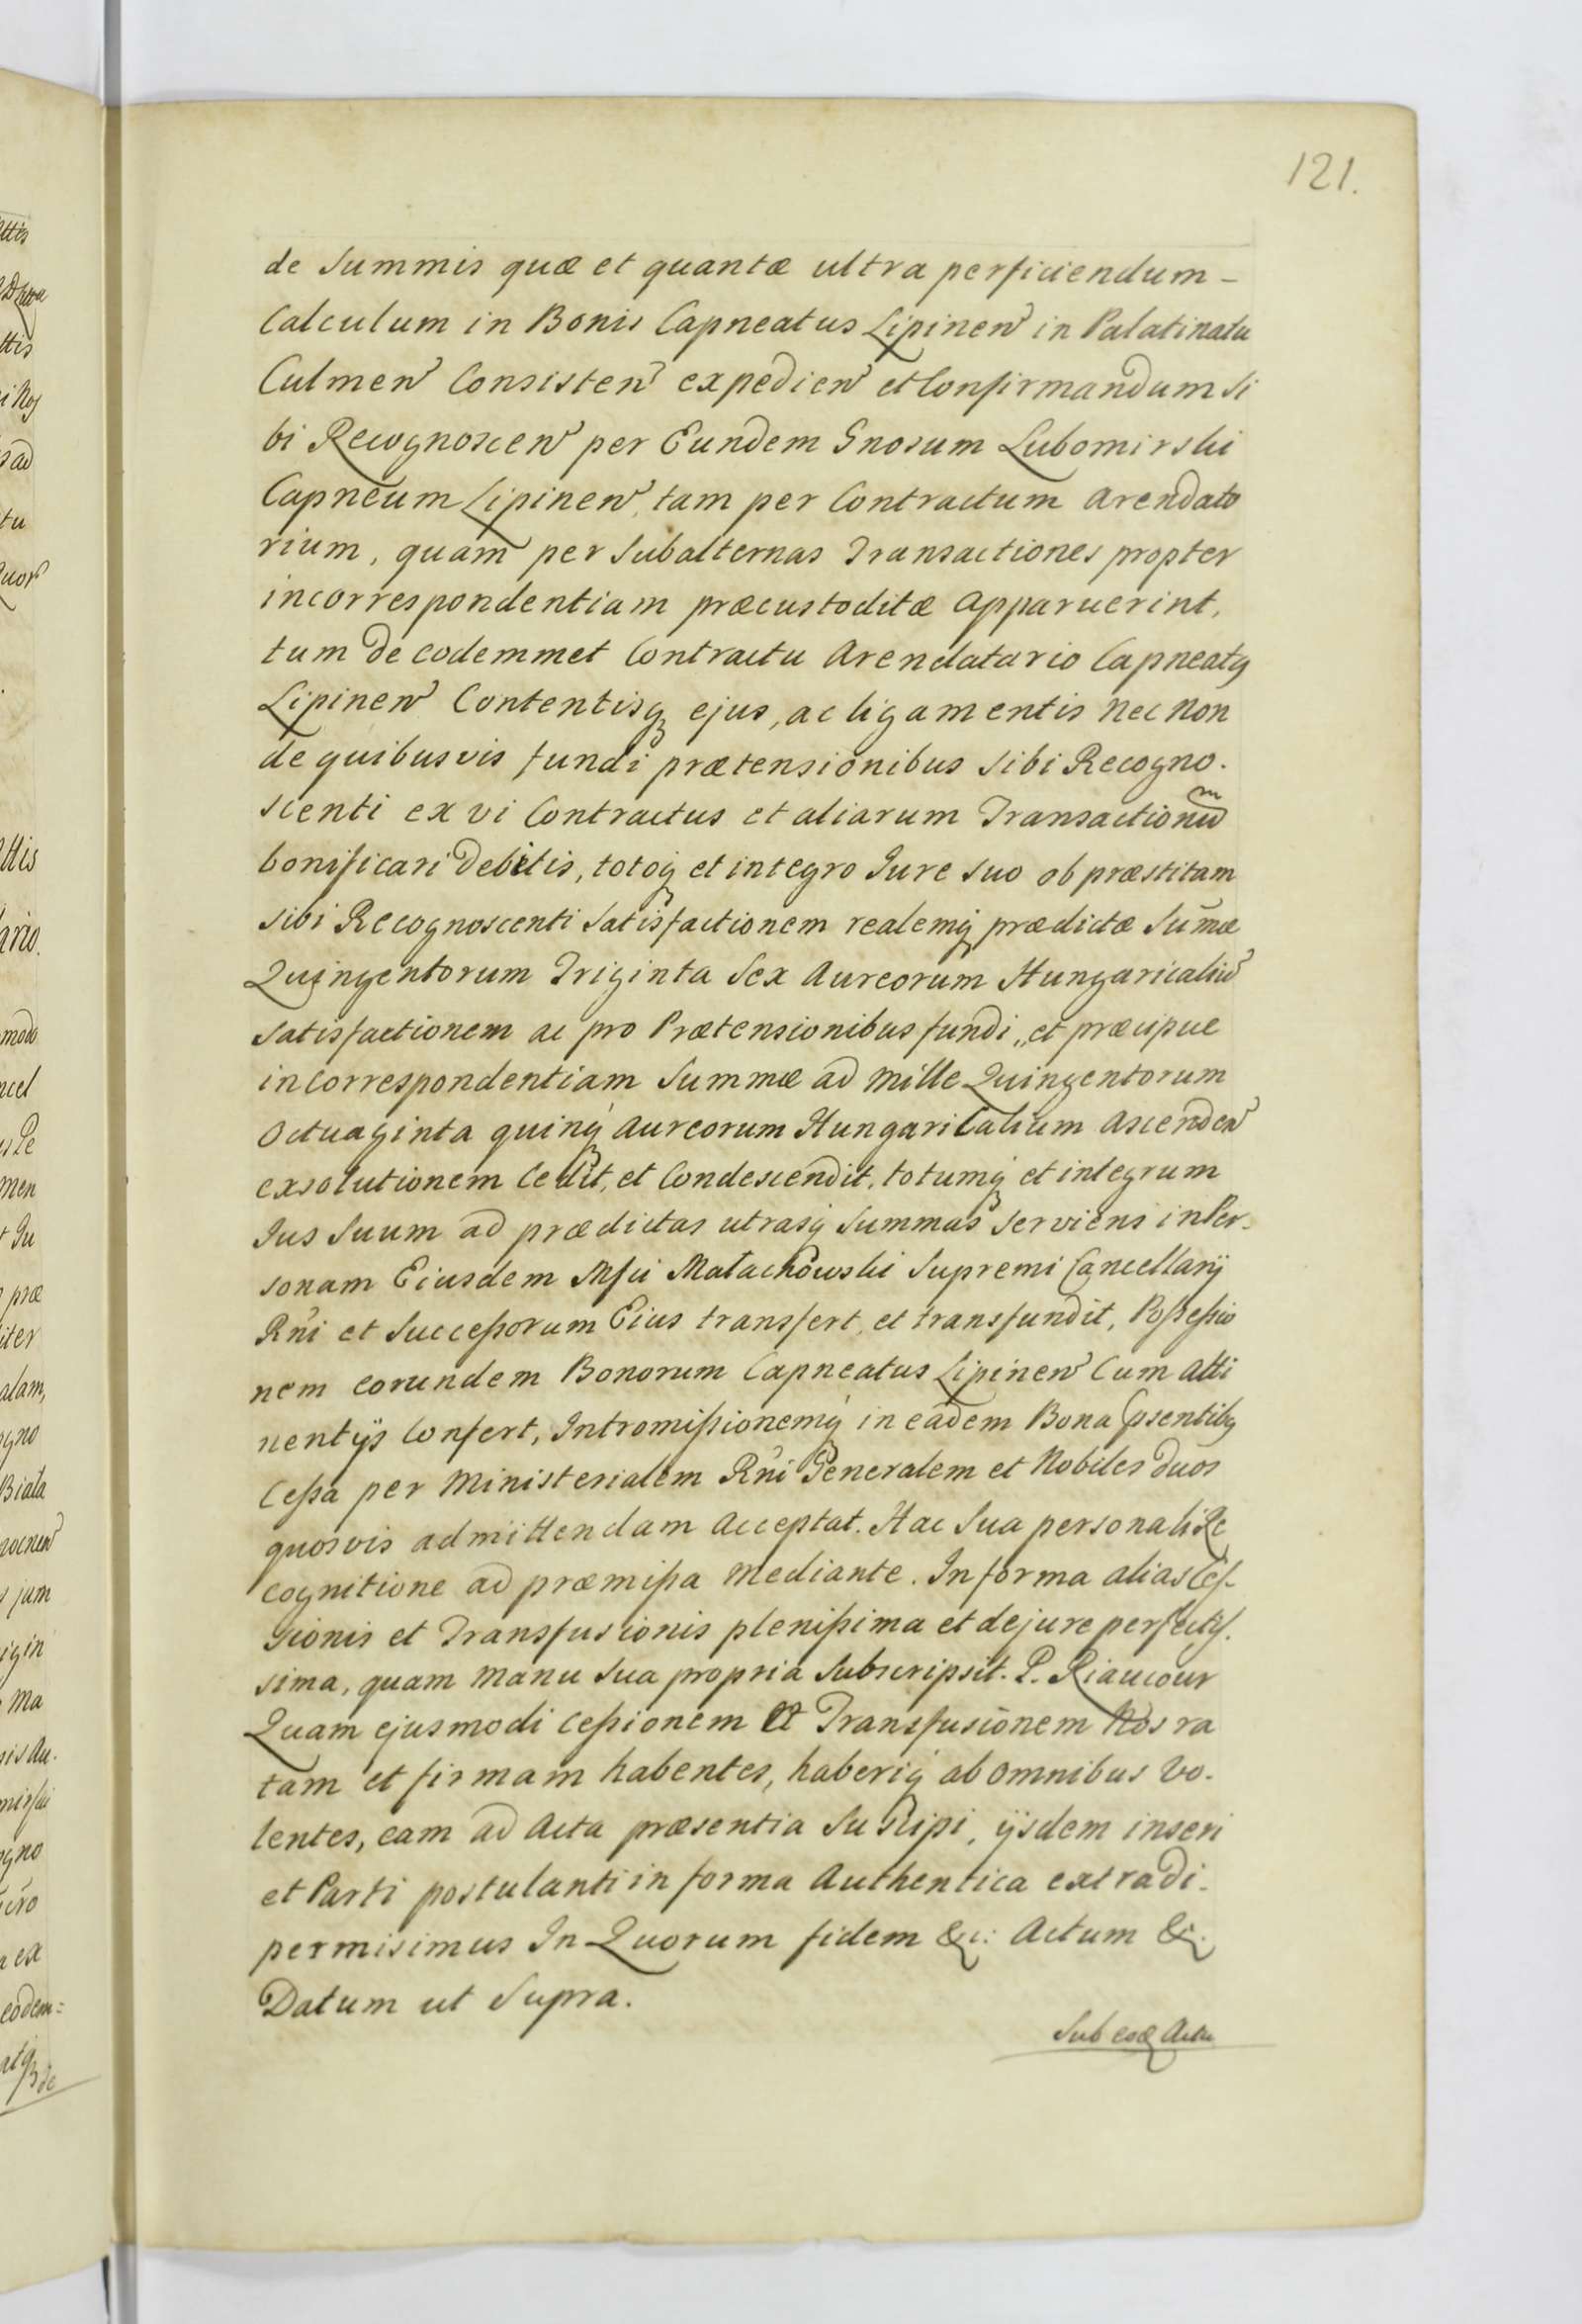 121.
de Summis quæ et quantæ ultra perficiendum -
Calculum in Bonis Capneatus Lipinen in Palatinatu
Culmen Consisten expedien et Confirmandum Si
bi Recognoscen per Eundem Gnosum Lubomirski
Capneum Lipinen, tam per Contractum Arendato
rium, quam per Subalternas Transactiones propter
incorrespondentiam præcustoditæ Apparuerint,
tum de eodemmet Contractu Arendatario Capneatq
Lipinen Contentisq ejus, ac ligamentis nec non
de quibusvis fundi prætensionibus Sibi Recogno.
scenti ex vi Contractus et aliarum Transactionum
bonificari Debitis, totoq et integro Jure Suo ob præstitam
Sibi Recognoscenti Satisfactionem realemq prædictæ Sum̃æ
Quingentorum Triginta Sex Aureorum Hungaricaliu
Satisfactionem ac pro Prætensionibus fundi, et præcipue
incorrespondentiam Summæ ad Mille Quingentorum
Octuaginta quinq Aureorum Hungaricalium Ascenden
exsolutionem Cedit, et Condescendit, totumq et integrum
Jus Suum ad prædictas utrasq Summas Serviens in Per-
sonam Eiusdem Mfci Małachowski Supremi Cancellarij
Rñi et Succeßorum Eius transfert, et transfundit, Poßeßio
nem eorundem Bonorum Capneatus Lipinen Cum Atti
nentijs Confert, Intromißionemq in eadem Bona psentibq
Ceßa per Ministerialem Rñi Generalem et Nobiles Duos
quosvis admittendam Acceptat. Hac Sua personali Re
cognitione ad præmißa Mediante. In forma alias Ces-
sionis et Transfusionis plenißima et de jure perfectis.
sima, quam Manu Sua propria Subscripsit. P. Riaucour
Quam ejusmodi Ceßionem Et Transfusionem Nos ra
tam et firmam habentes, haberiq ab omnibus Vo-
lentes, eam ad Acta præsentia Suscipi, ijsdem inseri
et Parti postulanti in forma Authentica extradi-
permisimus In Quorum fidem &c: Actum &.
Datum ut Supra.
Sub eodq Actu